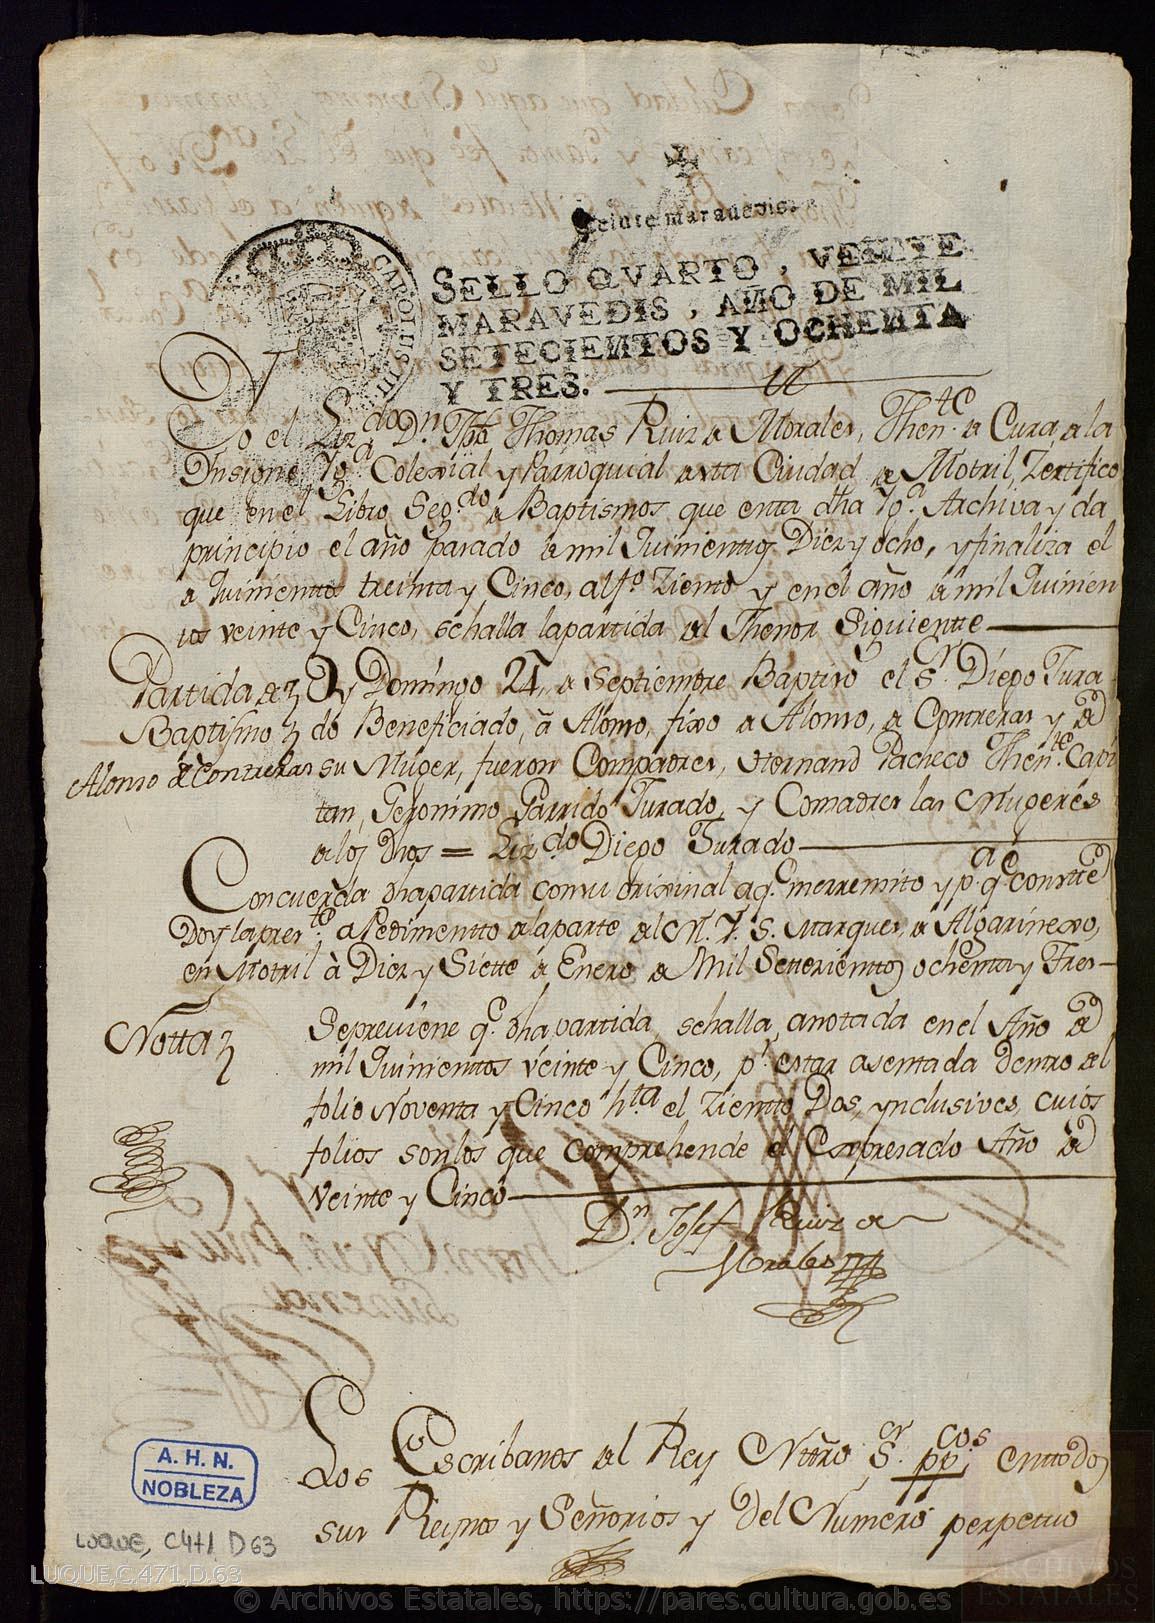 Veinte maravedis.
SELLO QVARTO, VEINTE
MARAVEDIS, AÑO DE MIL
SETECIENTOS Y OCHENTA
Y TRES.
CAROLUS III
Yo el Lizdo Dn Jph Thomas Ruiz de Morales, Thente de Cura de la
Insigne Yga Colexial y Parroquial de esta Ciudad de Motril, Zertifico
que en el Libro Segdo de Baptismos que en esta dha Yga Archiva y da
principio el año pasado de mil Quinientos Diez y ocho, y finaliza el
de Quinientos treinta y Cinco, al fo Ziento y en el año de mil Quinien
tos veinte y Cinco, se halla la partida del Thenor Siguiente
Partida de Oy Domingo 24 de Septiembre Baptizò el Sr Diego Jura
Baptismo do Beneficiado, à Alonso, fixo de Alonso, de Contreras y de
Alonso de Contreras su Muger, fueron Compadres, Hernand Pacheco Thente Capi
tan, Geronimo Garrido Jurado, y Comadres las Mugeres
de los Dhos = Lizdo Diego Jurado
Concuerda dha partida con su orixinal a qe me remito y pa qe conste
Doy la preste a Pedimentto de la parte del M. Y. S. Marques, de Algarinexo,
en Motril à Diez y Siette de Enero de Mil Settezienttos ochenta y Tres
Notta Se previene qe dha partida se halla anotada en el Año de
mil Quinientos veinte y Cinco, pr estar asentada dentro del
folio Noventa y Cinco hta el Zientto Dos, ynclusives, cuios
folios son los que comprehende el Expresado Año de
veinte y Cinco
Dn Josef Ruiz de
Morales
Los Escribanos del Rey Nttro Sr ppcos en ttodos
sus Reynos y Señorios y del Numero perpettuo
A. H. N.
NOBLEZA
LUQUE, C471 D63
LUQUE,C.471,D.63
ARCHIVOS
ESTATALES
© Archivos Estatales, https://pares.cultura.gob.es